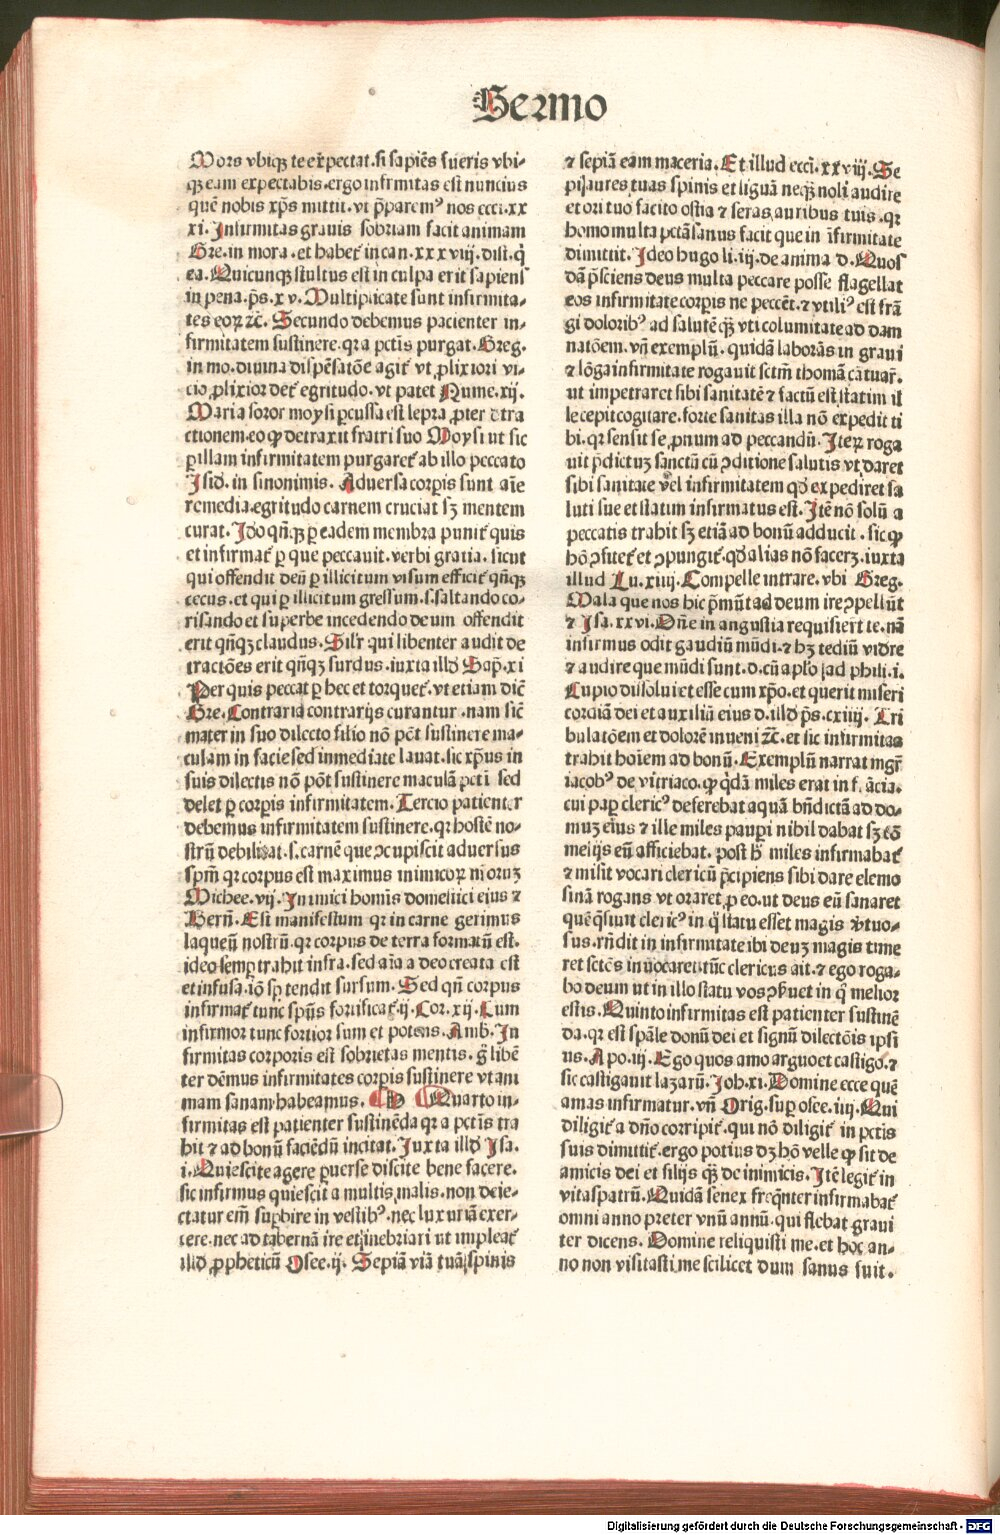 Sermo
Mors vbiqꝫ te expectat. si sapiẽs fueris vbi-
qꝫ eam expectabis. ergo infirmitas est nuncius
quẽ nobis xp̃s mittit. vt p̃paremꝰ nos ecci. xx
xi. Infirmitas grauis sobriam facit animam
Gre. in mora. et habet᷑ in can. xxxviij. dist. q̃
ea. Quicunqꝫ stultus est in culpa erit sapiens
in pena. p̃s. xv. Multiplicate sunt infirmita-
tes eoꝝ ⁊c̃. Secundo debemus pacienter in-
firmitatem sustinere. qꝛ a pctĩs purgat. Greg.
in mo. diuina dispẽsatõe agit᷑ vt ꝓlixiori vi-
cio ꝓlixior det᷑ egritudo. vt patet Nume. xij.
Maria soror moysi ꝑcussa est lepra ꝓpter detra
ctionem. eo ꝙ detraxit fratri suo Moysi ut sic
ꝑ illam infirmitatem purgaret᷑ ab illo peccato
Isid. in sinonimis. Aduersa corpis sunt aĩe
remedia. egritudo carnem cruciat sꝫ mentem
curat. Ido qñqꝫ ꝑ eadem membra punit᷑ quis
et infirmat᷑ ꝑ que peccauit. verbi gratia. sicut
qui offendit deũ ꝑ illicitum visum efficit᷑ qñqꝫ
cecus. et qui ꝑ illicitum gressum. s. saltando co-
risando et superbe incedendo deum offendit
erit qñqꝫ claudus. Silr̃ qui libenter audit de
tractões erit qñqꝫ surdus. iuxta illd Sap̃. xi
Per quis peccat ꝑ hec et torquet᷑. vt etiam dic̃
Gre. Contraria contrarijs curantur. nam sic̃
mater in suo dilecto filio nõ põt sustinere ma-
culam in facie sed inmediate lauat. sic xp̃us in
suis dilectis nõ põt sustinere maculã pcti sed
delet ꝑ corpis infirmitatem. Tercio patienter
debemus infirmitatem sustinere. qꝛ hostẽ no-
strũ debilitat. s. carnẽ que ↄcupiscit aduersus
sp̃m qꝛ corpus est maximus inimicoꝝ nr̃oruꝫ
Michee. vij. Inimici homĩs domestici eius ⁊
Bern̄. Est manifestum qꝛ in carne gerimus
laqueũ nostrũ. qꝛ corpus de terra formatũ est.
ideo semꝑ trahit infra. sed aĩa a deo creata est
et infusa. iõ sp̃ tendit sursum. Sed qñ corpus
infirmat᷑ tunc sp̃ũs fortificat᷑. ij. Cor. xij. Cum
infirmor tunc fortior sum et potens. Amb̃. In
firmitas corporis est sobrietas mentis. g̃ libẽ
ter dẽmus infirmitates corpis sustinere vt ani
mam sanam habeamus. Quarto in-
firmitas est patienter sustinẽda qꝛ a pctĩs tra
hit ⁊ ad bonũ faciẽdũ incitat. Iuxta illd Isa.
i. Quiescite agere ꝑuerse discite bene facere.
sic infirmus quiescit a multis malis. non deie-
ctatur em̃ suꝑbire in vestibꝰ. nec luxuriã exer-
cere. nec ad tabernã ire et inebriari ut impleat᷑
illd ꝓpheticũ Osee. ij. Sepiã viã tuã spinis
⁊ sepiã eam maceria. Et illud ecci. xxviij. Se
pi aures tuas spinis et liguã neqꝫ noli audire
et ori tuo facito ostia ⁊ seras auribus tuis. qꝛ
homo multa pctã sanus facit que in ĩfirmitate
dimittit. Ideo hugo li. iij. de anima d. Quos
dã p̃sciens deus multa peccare posse flagellat
eos infirmitate corpis ne peccẽt. ⁊ vtiliꝰ est frã
gi doloribꝰ ad salutẽ qꝫ vti columitate ad dam
natõem. vñ exemplũ. quidã laborãs in graui
⁊ lõga infirmitate rogauit sctm̃ thomã cãtuaꝝ.
ut impetraret sibi sanitatẽ ⁊ factũ est. statim il
le cepit cogitare. forte sanitas illa nõ expedit ti
bi. qꝛ sensit se ꝓnum ad peccandũ. Iteꝝ roga
uit p̃dictuꝫ sanctũ cũ ↄditione salutis vt daret
sibi sanitate vel infirmitatem qd̃ expediret sa
luti sue et statim infirmatus est. Itẽ nõ solũ a
peccatis trahit sꝫ etiã ad bonũ adducit. sic ꝙ
hõ ↄfitet᷑ et ↄpungit᷑. qd̃ alias nõ facerꝫ. iuxta
illud Lu. xiiij. Compelle intrare. vbi Greg.
Mala que nos hic p̃mũt ad deum ire ↄpellũt
⁊ Isa. xxvi. Dñe in angustia requisiert te. nã
infirmus odit gaudiũ mũdi. ⁊ hꝫ tediũ vidre
⁊ audire que mũdi sunt. d. cũ aplo ad phili. i.
Cupio dissolui et esse cum xp̃o. et querit miseri
cordiã dei et auxiliũ eius d. illd p̃s. cxiiij. Tri
bulatõem et dolorẽ inueni ⁊c̃. et sic infirmitas
trahit hoĩem ad bonũ. Exemplũ narrat mgr̃
iacobꝰ de vitriaco. ꝙ q̃dã miles erat in frãcia.
cui pauꝑ clericꝰ deferebat aquã bñdictã ad do-
muꝫ eius ⁊ ille miles pauꝑi nihil dabat sꝫ cõ
meijs eũ afficiebat. post h̃ miles infirmabat᷑
⁊ misit vocari clericũ p̃cipiens sibi dare elemo
sinã rogans vt oraret ꝓ eo. ut deus eũ sanaret
quẽ q̃siuit clericꝰ in q̃ statu esset magis v̓tuo-
sus. rñdit in infirmitate ibi deuꝫ magis time
ret sctẽs inuocaret. tũc clericus ait. ⁊ ego roga-
bo deum ut in illo statu vos ↄẜuet in q̃ melior
estis. Quinto infirmitas est patienter sustinẽ
da. qꝛ est spãle donũ dei et signũ dilectõis ipsi
us. Apo. iij. Ego quos amo arguo et castigo. ⁊
sic castigauit lazarũ. Ioh. xi. Domine ecce quẽ
amas infirmatur. vñ Orig. suꝑ osee. iiij. Qui
diligit᷑ a dño corripit᷑. qui nõ diligit᷑ in pctis
suis dimittit᷑. ergo potius dꝫ hõ velle ꝙ sit de
amicis dei et filijs qꝫ de inimicis. Itẽ legit᷑ in
vitaspatrũ. Quidã senex freq̃nter infirmabat᷑
omni anno preter vnũ annũ. qui flebat graui
ter dicens. Domine reliquisti me. et hoc an-
no non visitasti me scilicet dum sanus fuit.
Digitalisierung gefördert durch die Deutsche Forschungsgemeinschaft - DFG